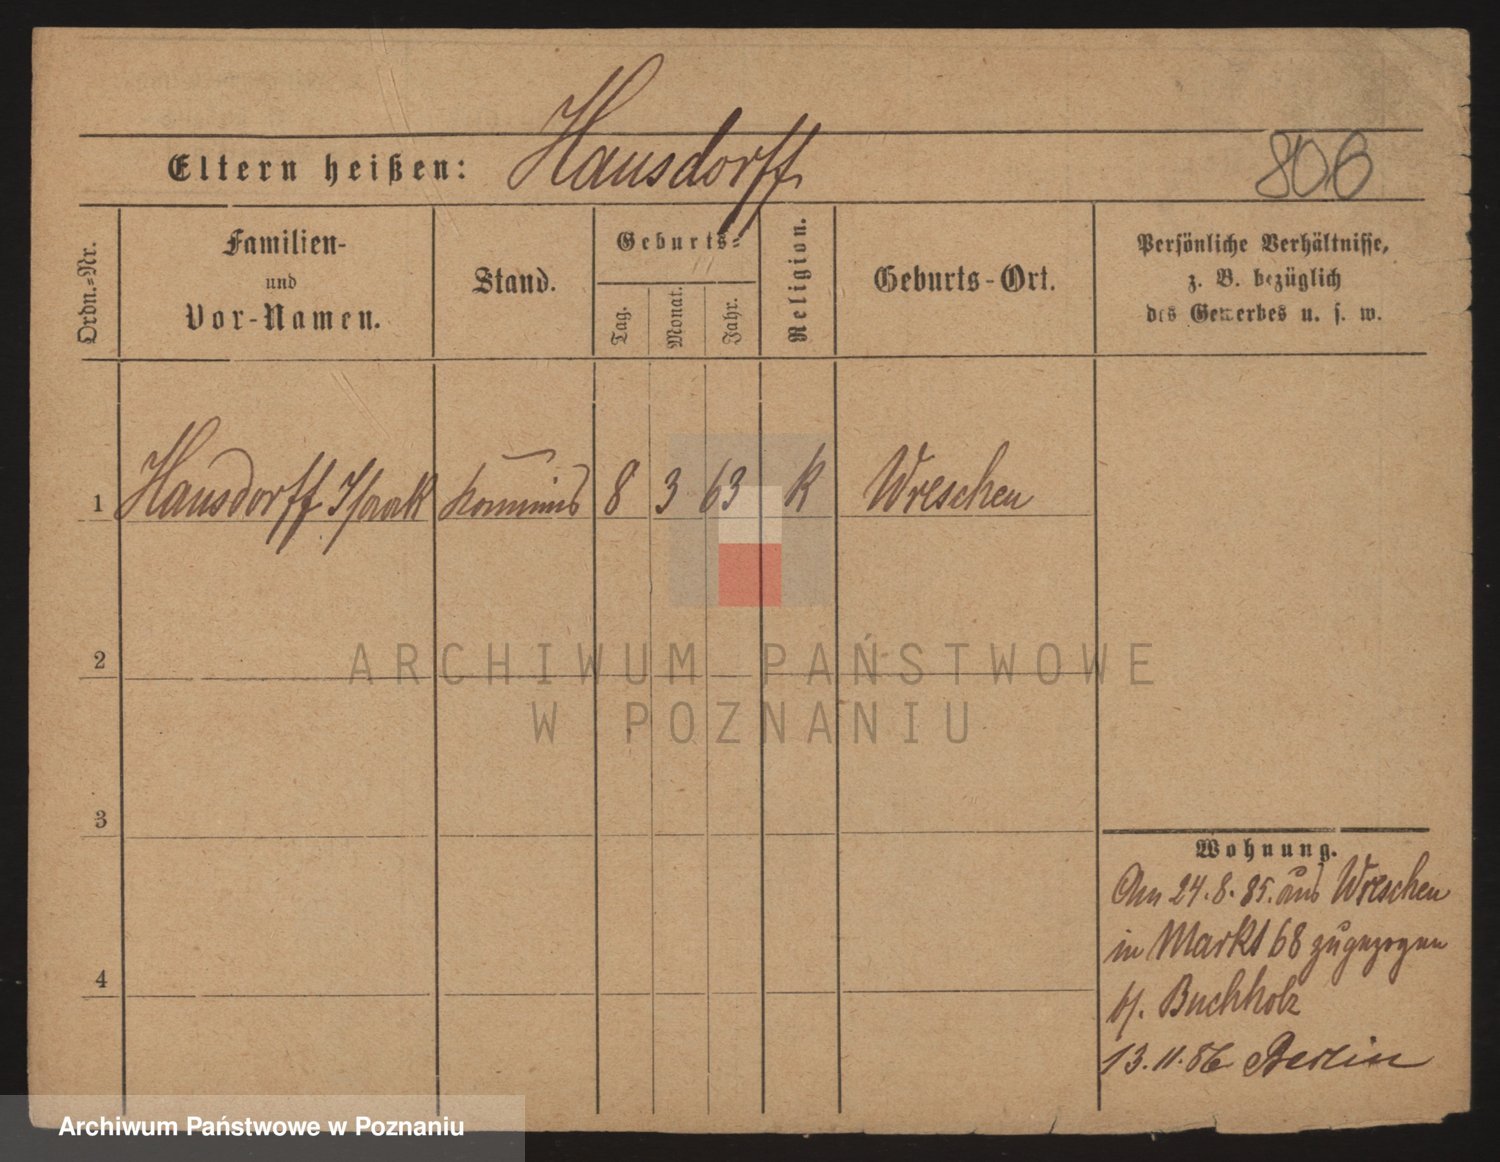 Eltern heißen: Hausdorff 806
Ordn.-Nr.
Familien-
und
Vor-Namen.
Stand.
Geburts-
Tag.
Monat.
Jahr.
Religion.
Geburts-Ort.
Persönliche Verhältnisse,
z. B. bezüglich
des Gewerbes u. s. w.
1 Hausdorff Isaak Kommis 8 3 63 k Wreschen
2
3
4
Wohnung.
Am 24.8.85. aus Wreschen
in Markt 68 zugezogen
b/. Buchholz
13.11.86 Berlin
ARCHIWUM PAŃSTWOWE
W POZNANIU
Archiwum Państwowe w Poznaniu